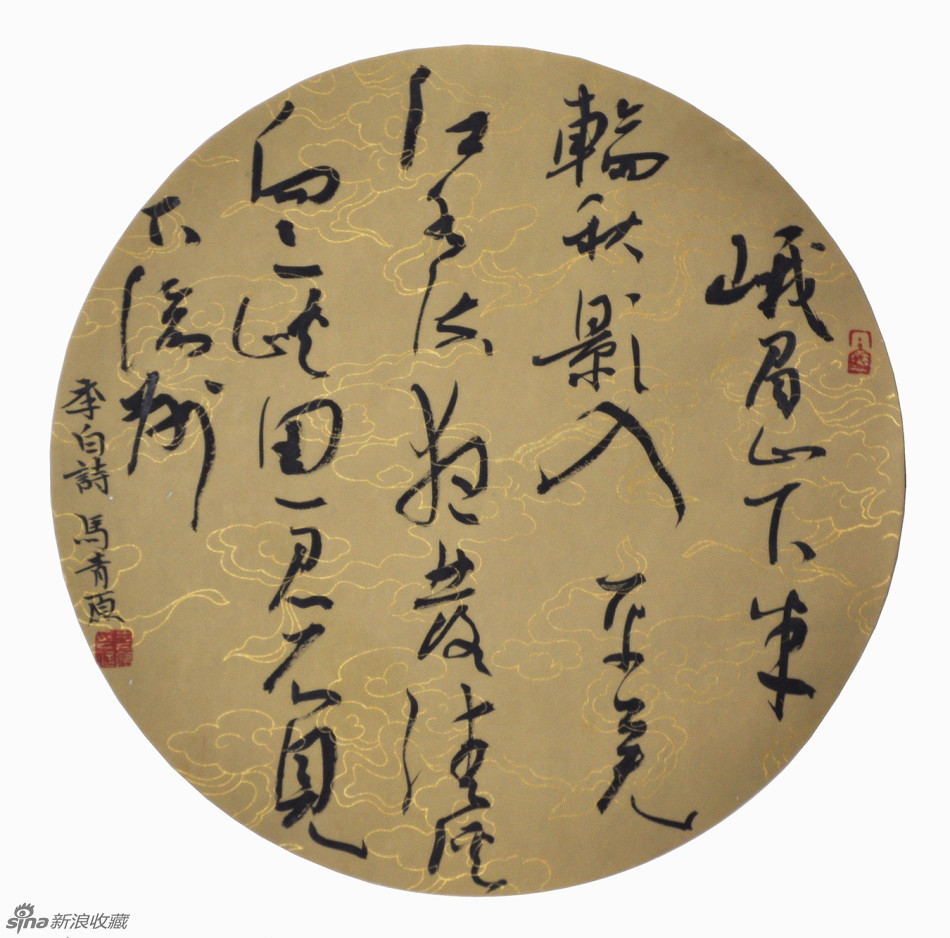 峨眉山月半
輪秋影入平羌
江水流夜發清溪
向三峽思君不見
下渝州
李白詩 馬青原
sina新浪收藏